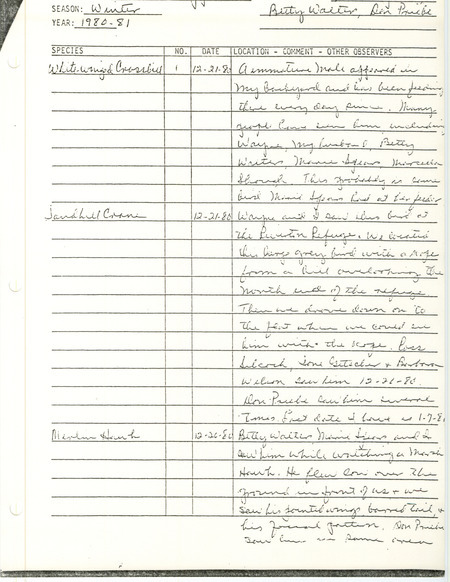 SEASON: Winter
Betty Walter, Don Priebe
YEAR: 1980-81
SPECIES NO. DATE LOCATION - COMMENT - OTHER OBSERVERS
White-winged Crossbill 1 12-21-80 A immature Male appeared in
my backyard and has been feeding
there every day since. Many
people have seen him, including
Wayne, my husband, Betty
Walters, Marie Spears,
This probably is same
bird Marie Spears had at her feeder
Sandhill Crane 12-21-80 Wayne and I saw this bird at
the Riverton Refuge. We located
this large grey bird with a scope
from a hill overlooking the
North end of the refuge.
Then we drove down on to
the flat where we could see
him with the scope. Russ
Silcock, &amp; Barbara
Wilson saw him 12-21-80.
Don Priebe saw him several
times. Last date I have is 1-7-81
Merlin Hawk 12-26-80 Betty Walters Marie Spears and I
saw him while watching a Marsh
Hawk. He flew low over the
ground in front of us + we
saw his pointed wings barred tail, +
his facial pattern. Don Priebe
saw him in same area